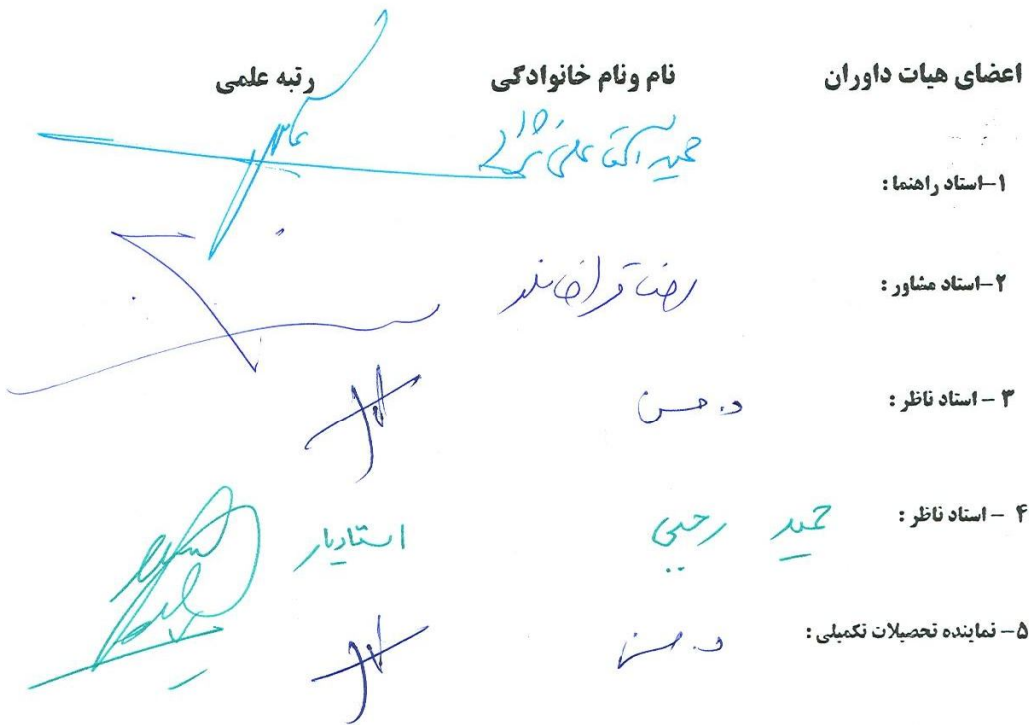 اعضای هیات داوران نام ونام خانوادگی رتبه علمی
۱-استاد راهنما :
۲-استاد مشاور : رضا قراخانلو
۳ - استاد ناظر : د. حسن
۴ - استاد ناظر : حمید رجبی استادیار
۵- نماینده تحصیلات تکمیلی : د. حسن